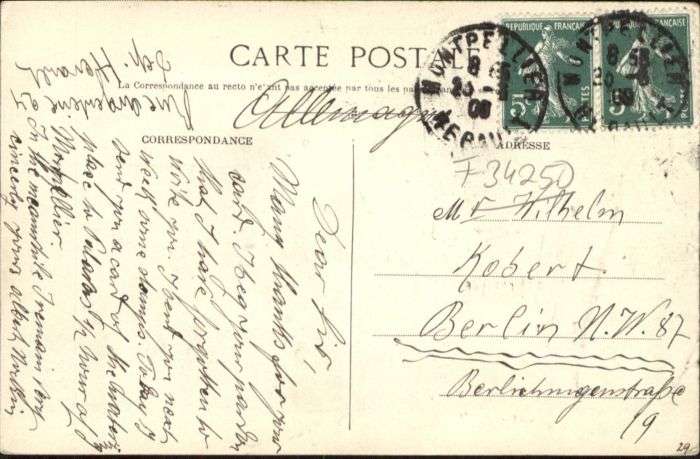 CARTE POSTALE
La Correspondance au recto n'est pas acceptée par tous les pays
CORRESPONDANCE
ADRESSE
REPUBLIQUE FRANÇAISE
MONTPELLIER
HERAULT
REPUBLIQUE FRANÇAISE
MONTPELLIER
Allemagne
F34250
Mr Wilhelm
Kobert
Berlin N.W. 87
Berlichingenstraße
19
Dear Sir,
Many thanks for your
card. I beg your pardon
that I have forgotten to
write you. I send you next
week some stamps. Today I
send you a card of the
place
Montpellier.
In the meanwhile I remain Sir
sincerely yours Albert
Rue Argenterie 24
Dep. Herault
29